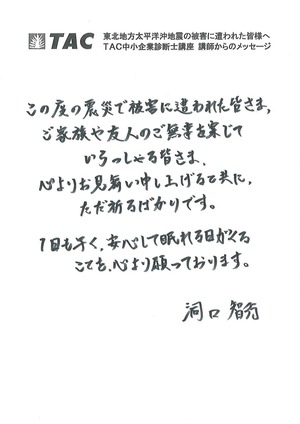 TAC 東北地方太平洋沖地震の被害に遭われた皆様へ
TAC中小企業診断士講座 講師からのメッセージ
この度の震災で被害に遭われた皆さま、
ご家族や友人のご無事を案じて
いらっしゃる皆さま、
心よりお見舞い申し上げると共に、
ただ祈るばかりです。
1日も早く、安心して眠れる日がくる
ことを、心より願っております。
洞口 智行